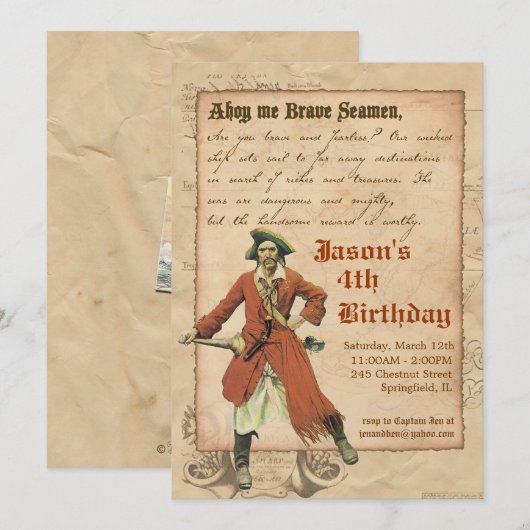 Ahoy me Brave Seamen,
Are you brave and fearless? Our wicked
ship sets sail to far away destinations
in search of riches and treasures. The
seas are dangerous and mighty,
but the handsome reward is worthy.
Jason's
4th
Birthday
Saturday, March 12th
11:00AM - 2:00PM
245 Chestnut Street
Springfield, IL
rsvp to Captain Jen at
jenandben@yahoo.com
©